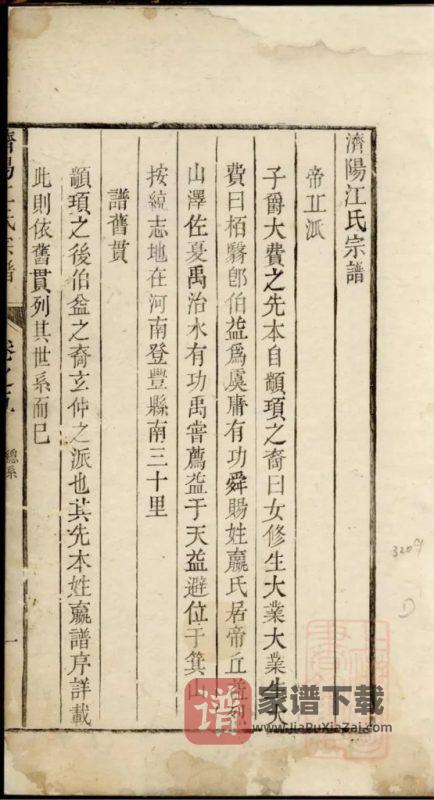 濟陽江氏宗譜
帝丘派
子爵大費之先本自顓頊之裔曰女修生大業大業生大
費曰栢翳卽伯益爲虞庸有功舜賜姓嬴氏居帝丘益烈
山澤佐夏禹治水有功禹嘗薦益于天益避位于箕山
按統志地在河南登豐縣南三十里
譜舊貫
顓頊之後伯益之裔玄仲之派也其先本姓嬴譜序詳載
此則依舊貫列其世系而已
濟陽江氏宗譜
卷之九
總系
一
譜
家谱下载
www.JiaPuXiaZai.com
3209
D